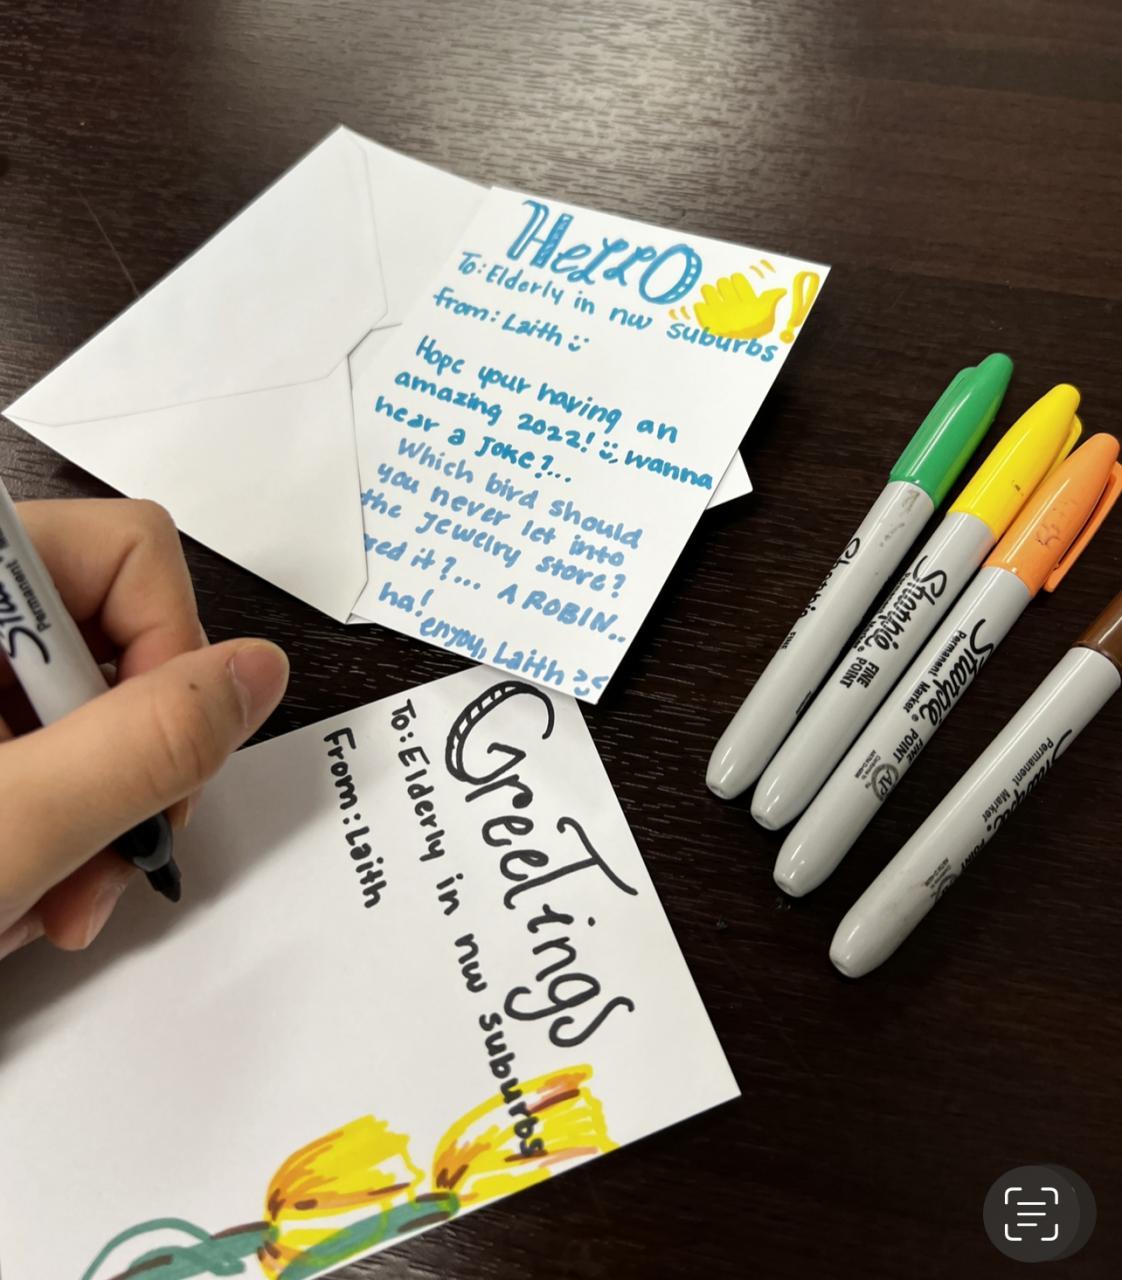 HeLLO
To: Elderly in nw suburbs
From: Laith
Hope your having an
amazing 2022! wanna
hear a joke?...
Which bird should
you never let into
the jewelry store?
it?... A ROBIN..
ha!
enyoy, Laith
GreeTings
To: Elderly in nw suburbs
From: Laith
Sharpie
FINE
Sharpie
FINE
POINT
Sharpie
Permanent Marker
FINE POINT
AP
Sharpie
Permanent
Marker
POINT
Permanent